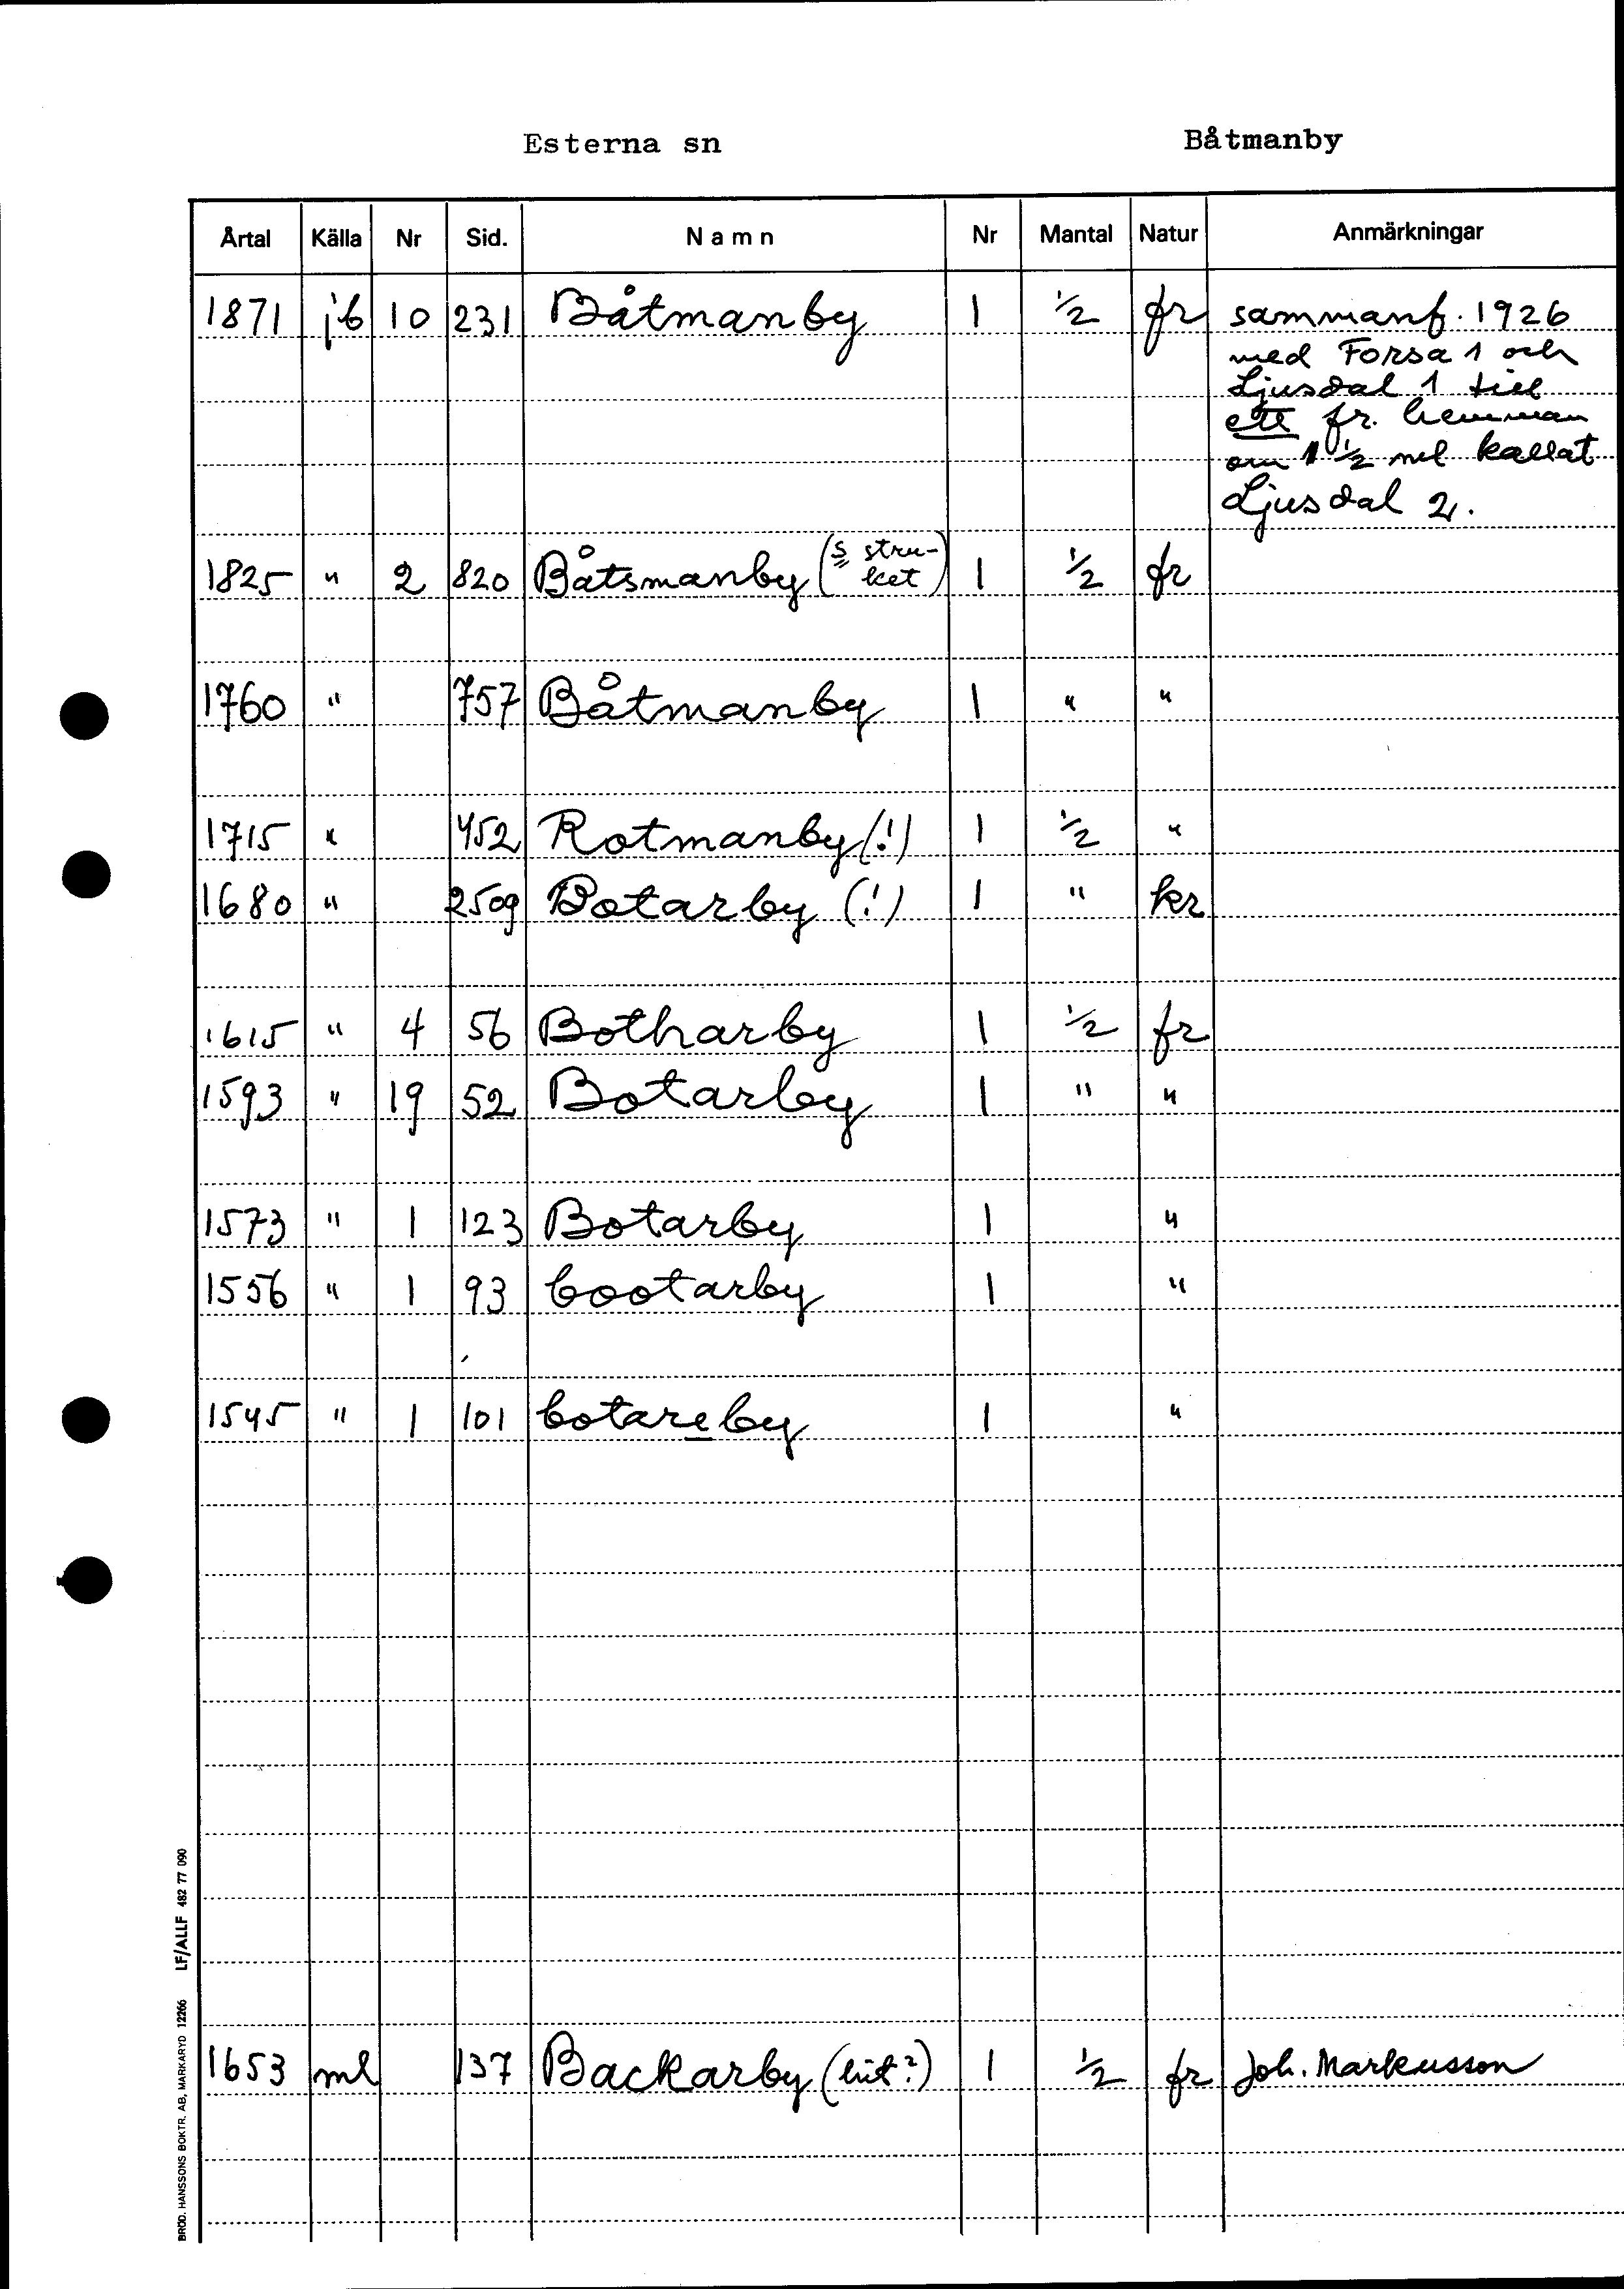 Esterna sn Båtmanby
Årtal Källa Nr Sid. Namn Nr Mantal Natur Anmärkningar
1871 jb 10 231 Båtmanby 1 1/2 fr sammanf. 1926
med Forsa 1 och
Ljusdal 1 till
ett fr. hemman
om 1 1/2 ml kallat
Ljusdal 2.
1825 " 2 820 Båtsmanby (s stru-
ket) 1 1/2 fr
1760 " 757 Båtmanby 1 " "
1715 " 452 Rotmanby (!) 1 1/2 "
1680 " 2509 Botarby (!) 1 " kr
1615 " 4 56 Botharby 1 1/2 fr
1593 " 19 52 Botarby 1 " "
1573 " 1 123 Botarby 1 "
1556 " 1 93 bootarby 1 "
1545 " 1 101 botareby 1 "
1653 ml 137 Backarby (hit?) 1 1/2 fr Joh. Markusson
BRÖD. HANSSONS BOKTR. AB, MARKARYD 12266 LF/ALLF 482 77 090